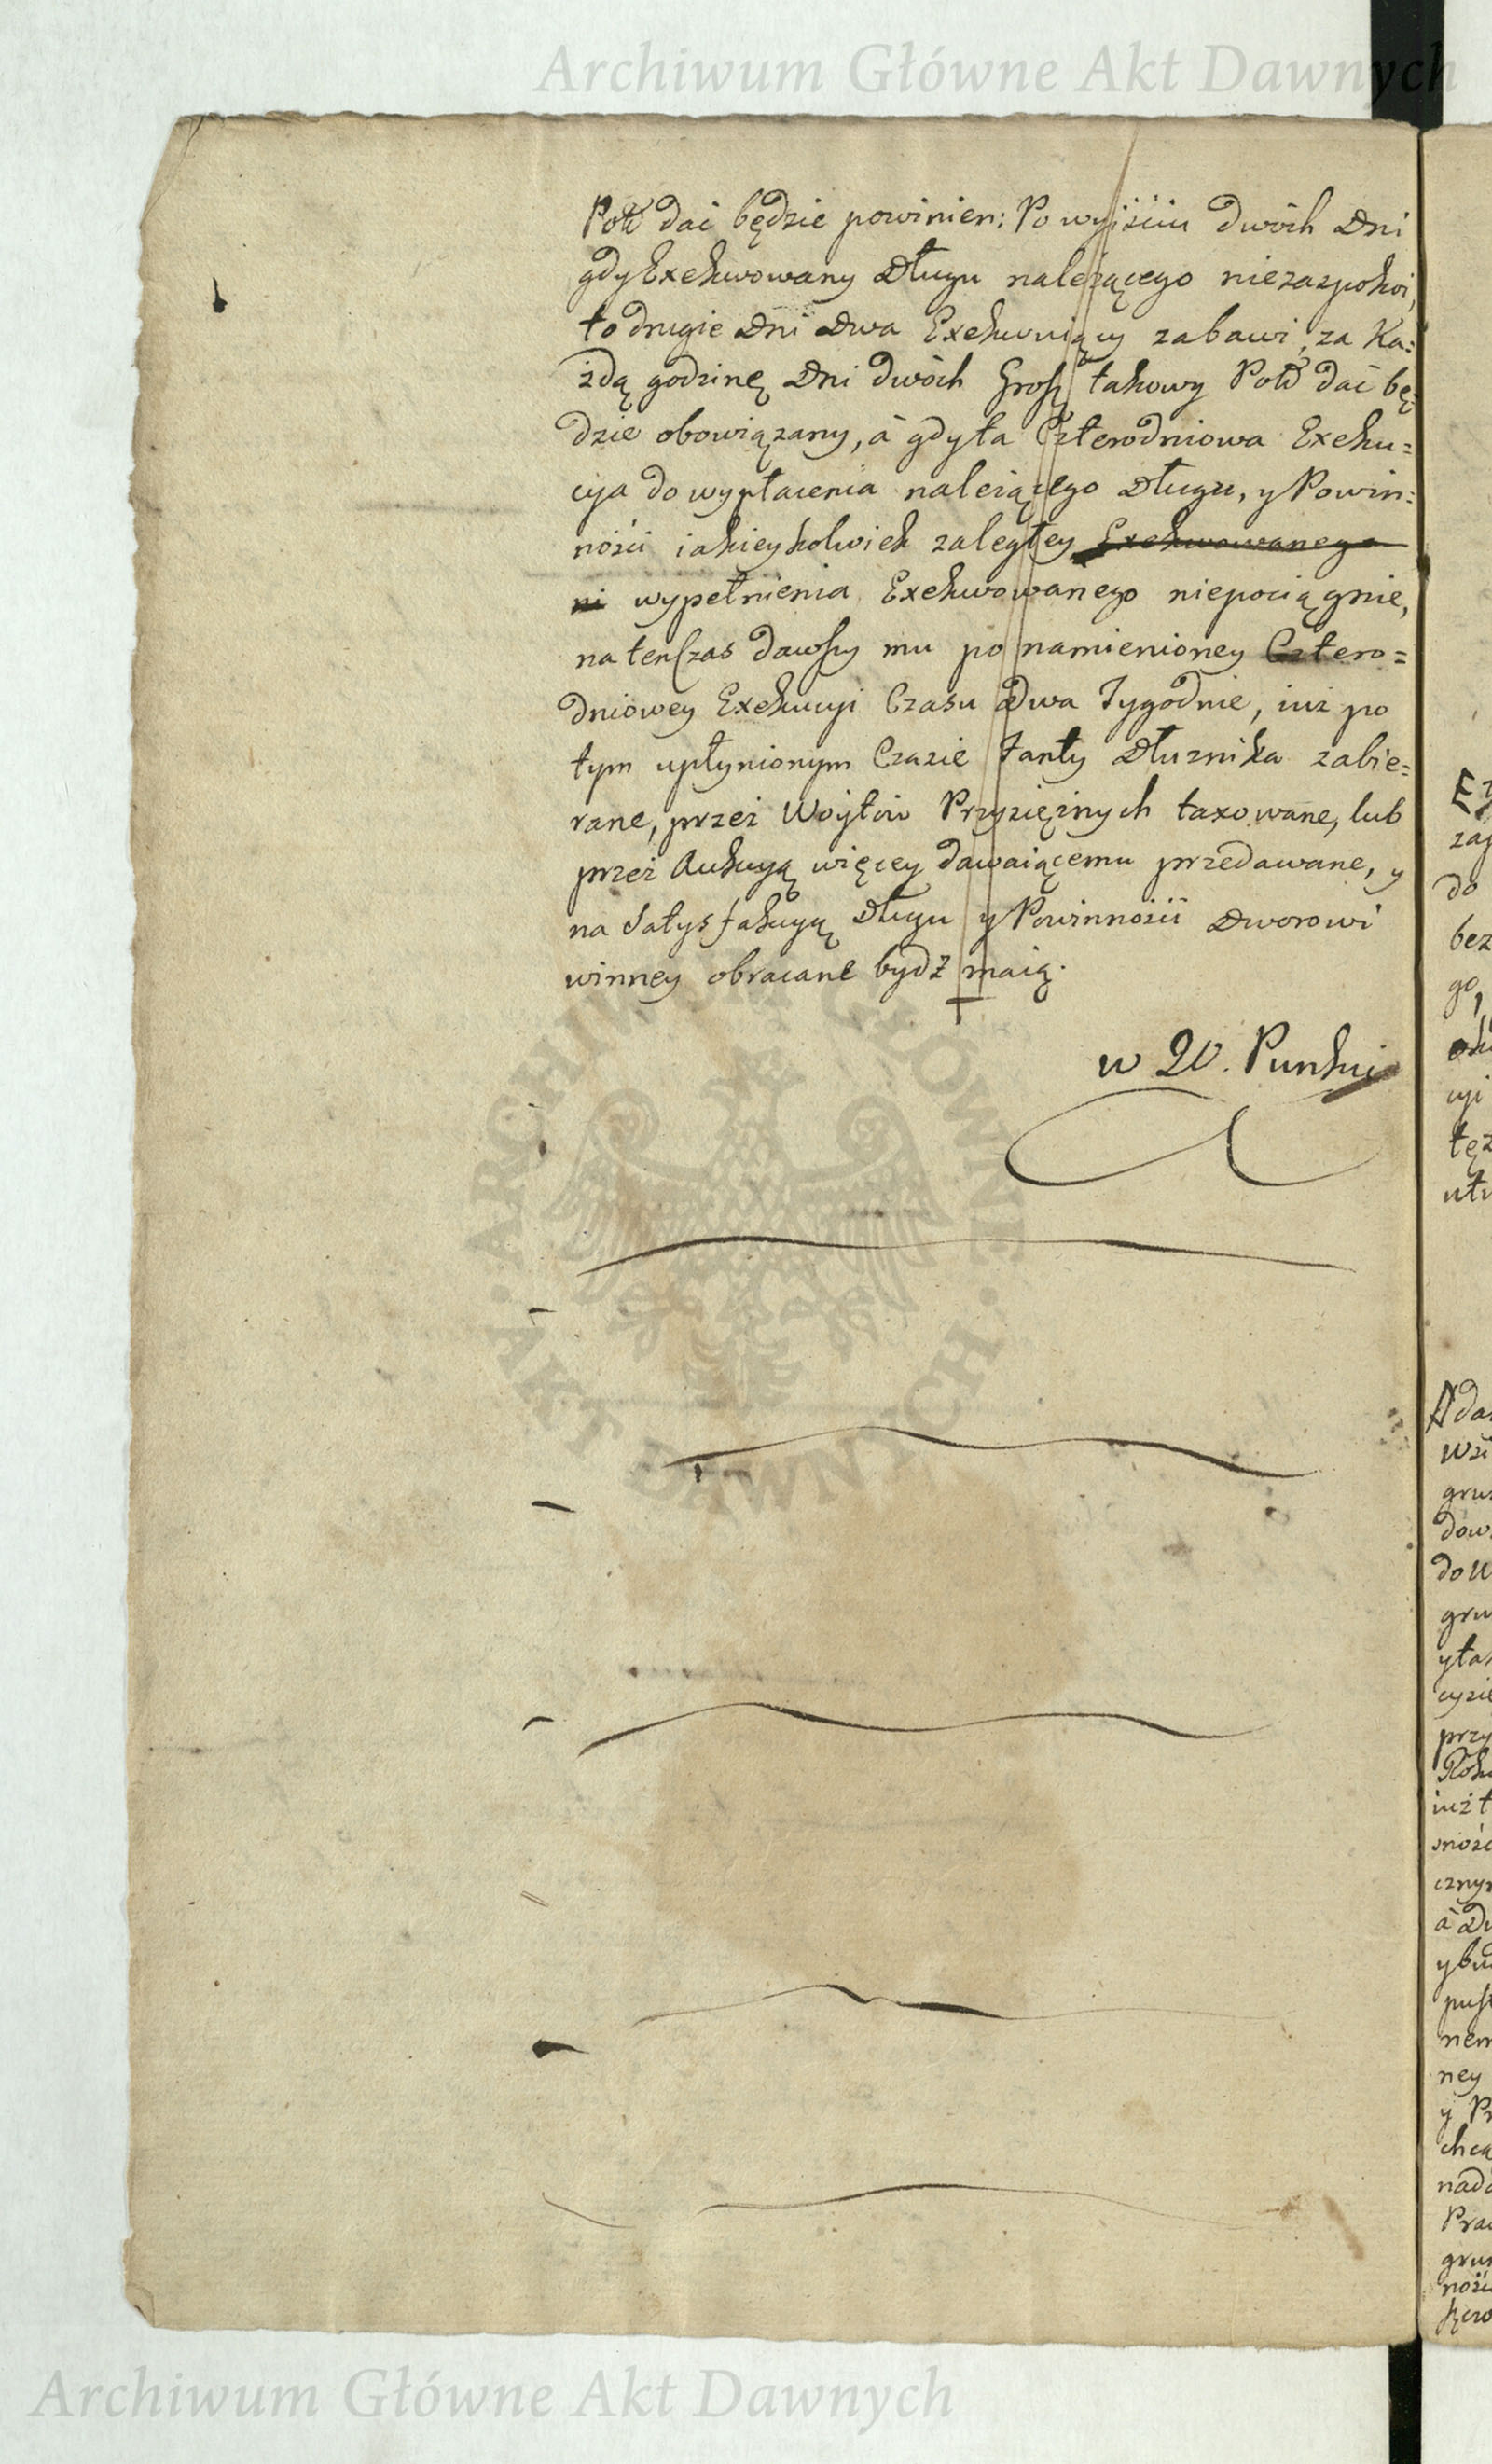 Archiwum Główne Akt Dawnych
dać będzie powinien: Po wyiściu dwóch Dni
gdy Exekwowany Długu należącego niezaspokoi,
to drugie Dni Dwa Exekwuiący zabawi, za Ka=
żdą godzinę Dni dwóch Groszy takowy dać bę=
dzie obowiązany, à gdy ta Czterodniowa Exeku=
cyja do wypłacenia należącego Długu, y Powin=
ności iakieykolwiek zaległey Exekwowanego
ni wypełnienia Exekwowanego niepociągnie,
na ten Czas dawszy mu po namienioney Cztero=
dniowey Exekucyi Czasu Dwa Tygodnie, iuż po
tym upłynionym Czasie Fanty Dłużnika zabie=
rane, przez Woytów Przysiężnych taxowane, lub
przez Aukcyą więcey dawaiącemu przedawane, y
na Satysfakcyą Długu y Powinności Dworowi
winney obracane bydź maią.
w 20. Punkcie
ARCHIWUM GŁÓWNE · AKT DAWNYCH ·
zap
do
bez
go,
cyi
też
Ada
grun
dow
do W
gru
przy
iuż t
ności
cznym
à Dw
nem
ney
y Pr
chcą
nada
Pra
grun
nośc
Archiwum Główne Akt Dawnych